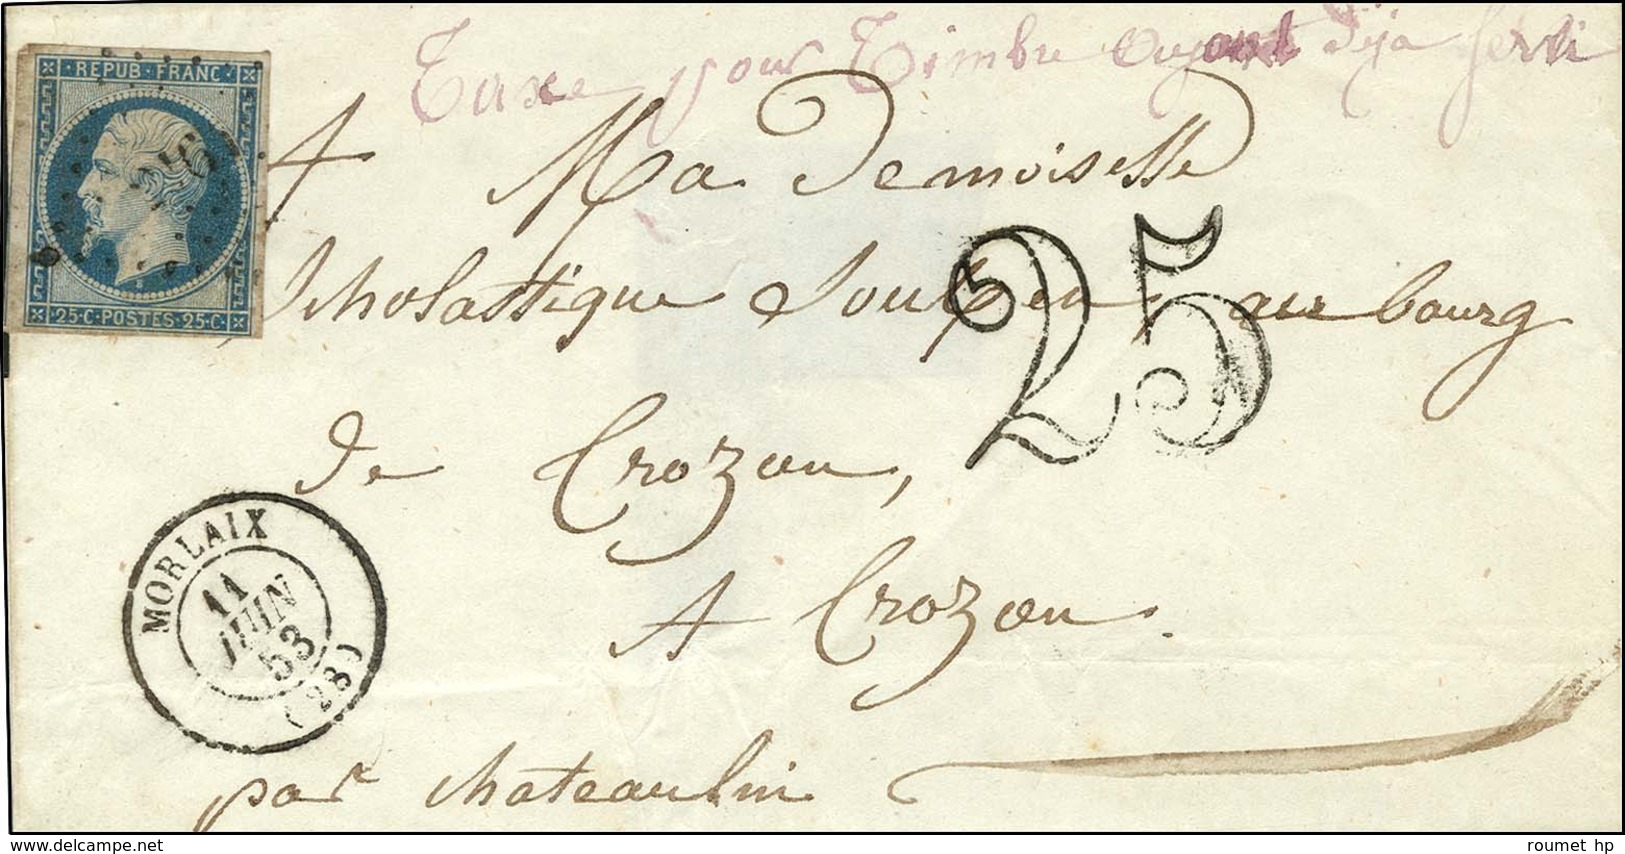 Taxe pour Timbre ayant déja servi
REPUB. FRANC.
25·C·POSTES·25·C.
A Mademoiselle
Scholastique au bourg
25
de Crozon,
A Crozon.
par chateaulin
MORLAIX
11
JUIN
53
(28)
roumet hp